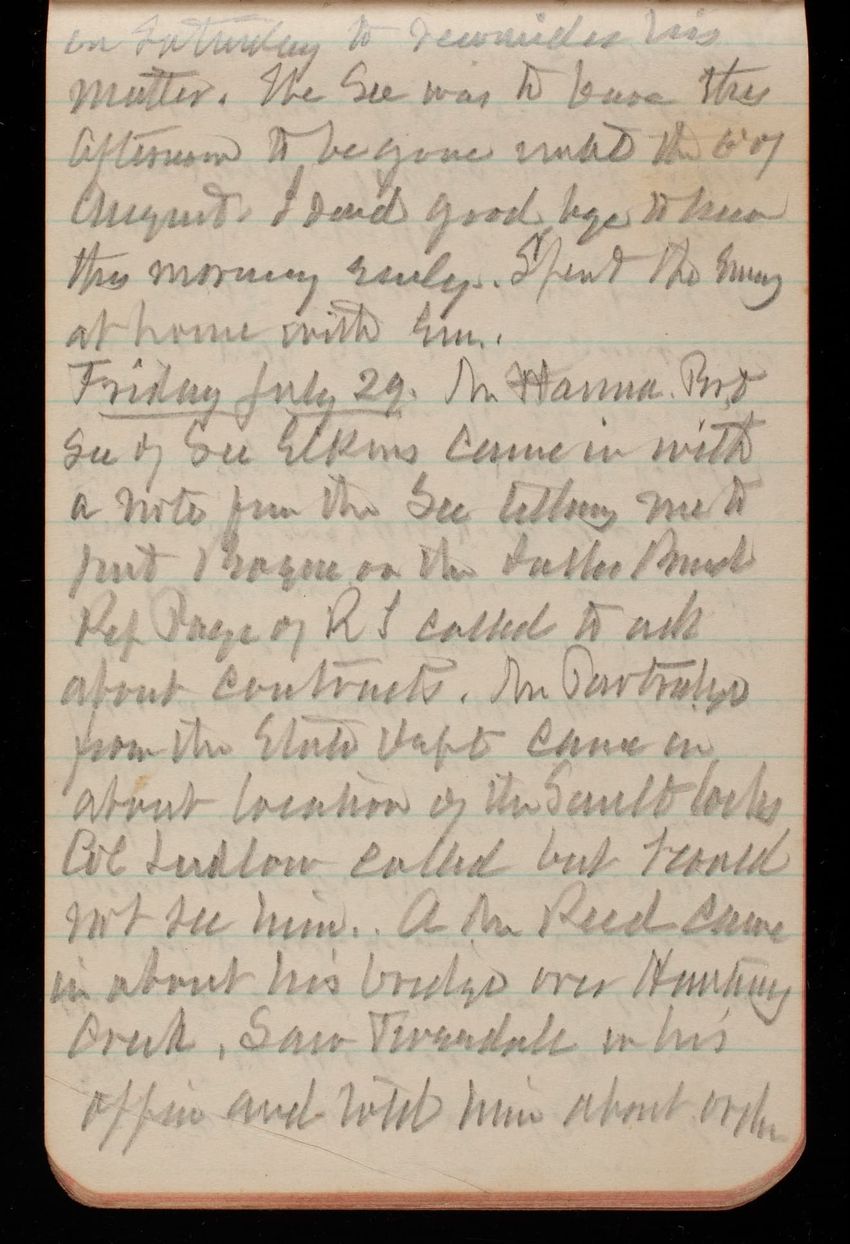 on Saturday to reconsider his
matter. The Sec was to leave this
afternoon to be gone until the 6' of
August. I said good bye to him
this morning early. Spent the Evng
at home with Em.
Friday July 29. Mr Hanna. Prvt
Sec of Sec Elkins came in with
a note from the Sec telling me to
put on the Board
Rep Page of R I called to ask
about contracts. Mr Partridge
from the State Dept came in
about location of the Sault locks
Col Ludlow called but I could
not see him. A Mr Reed came
in about his bridge over Hunting
Creek. Saw Tweedale in his
office and told him about order